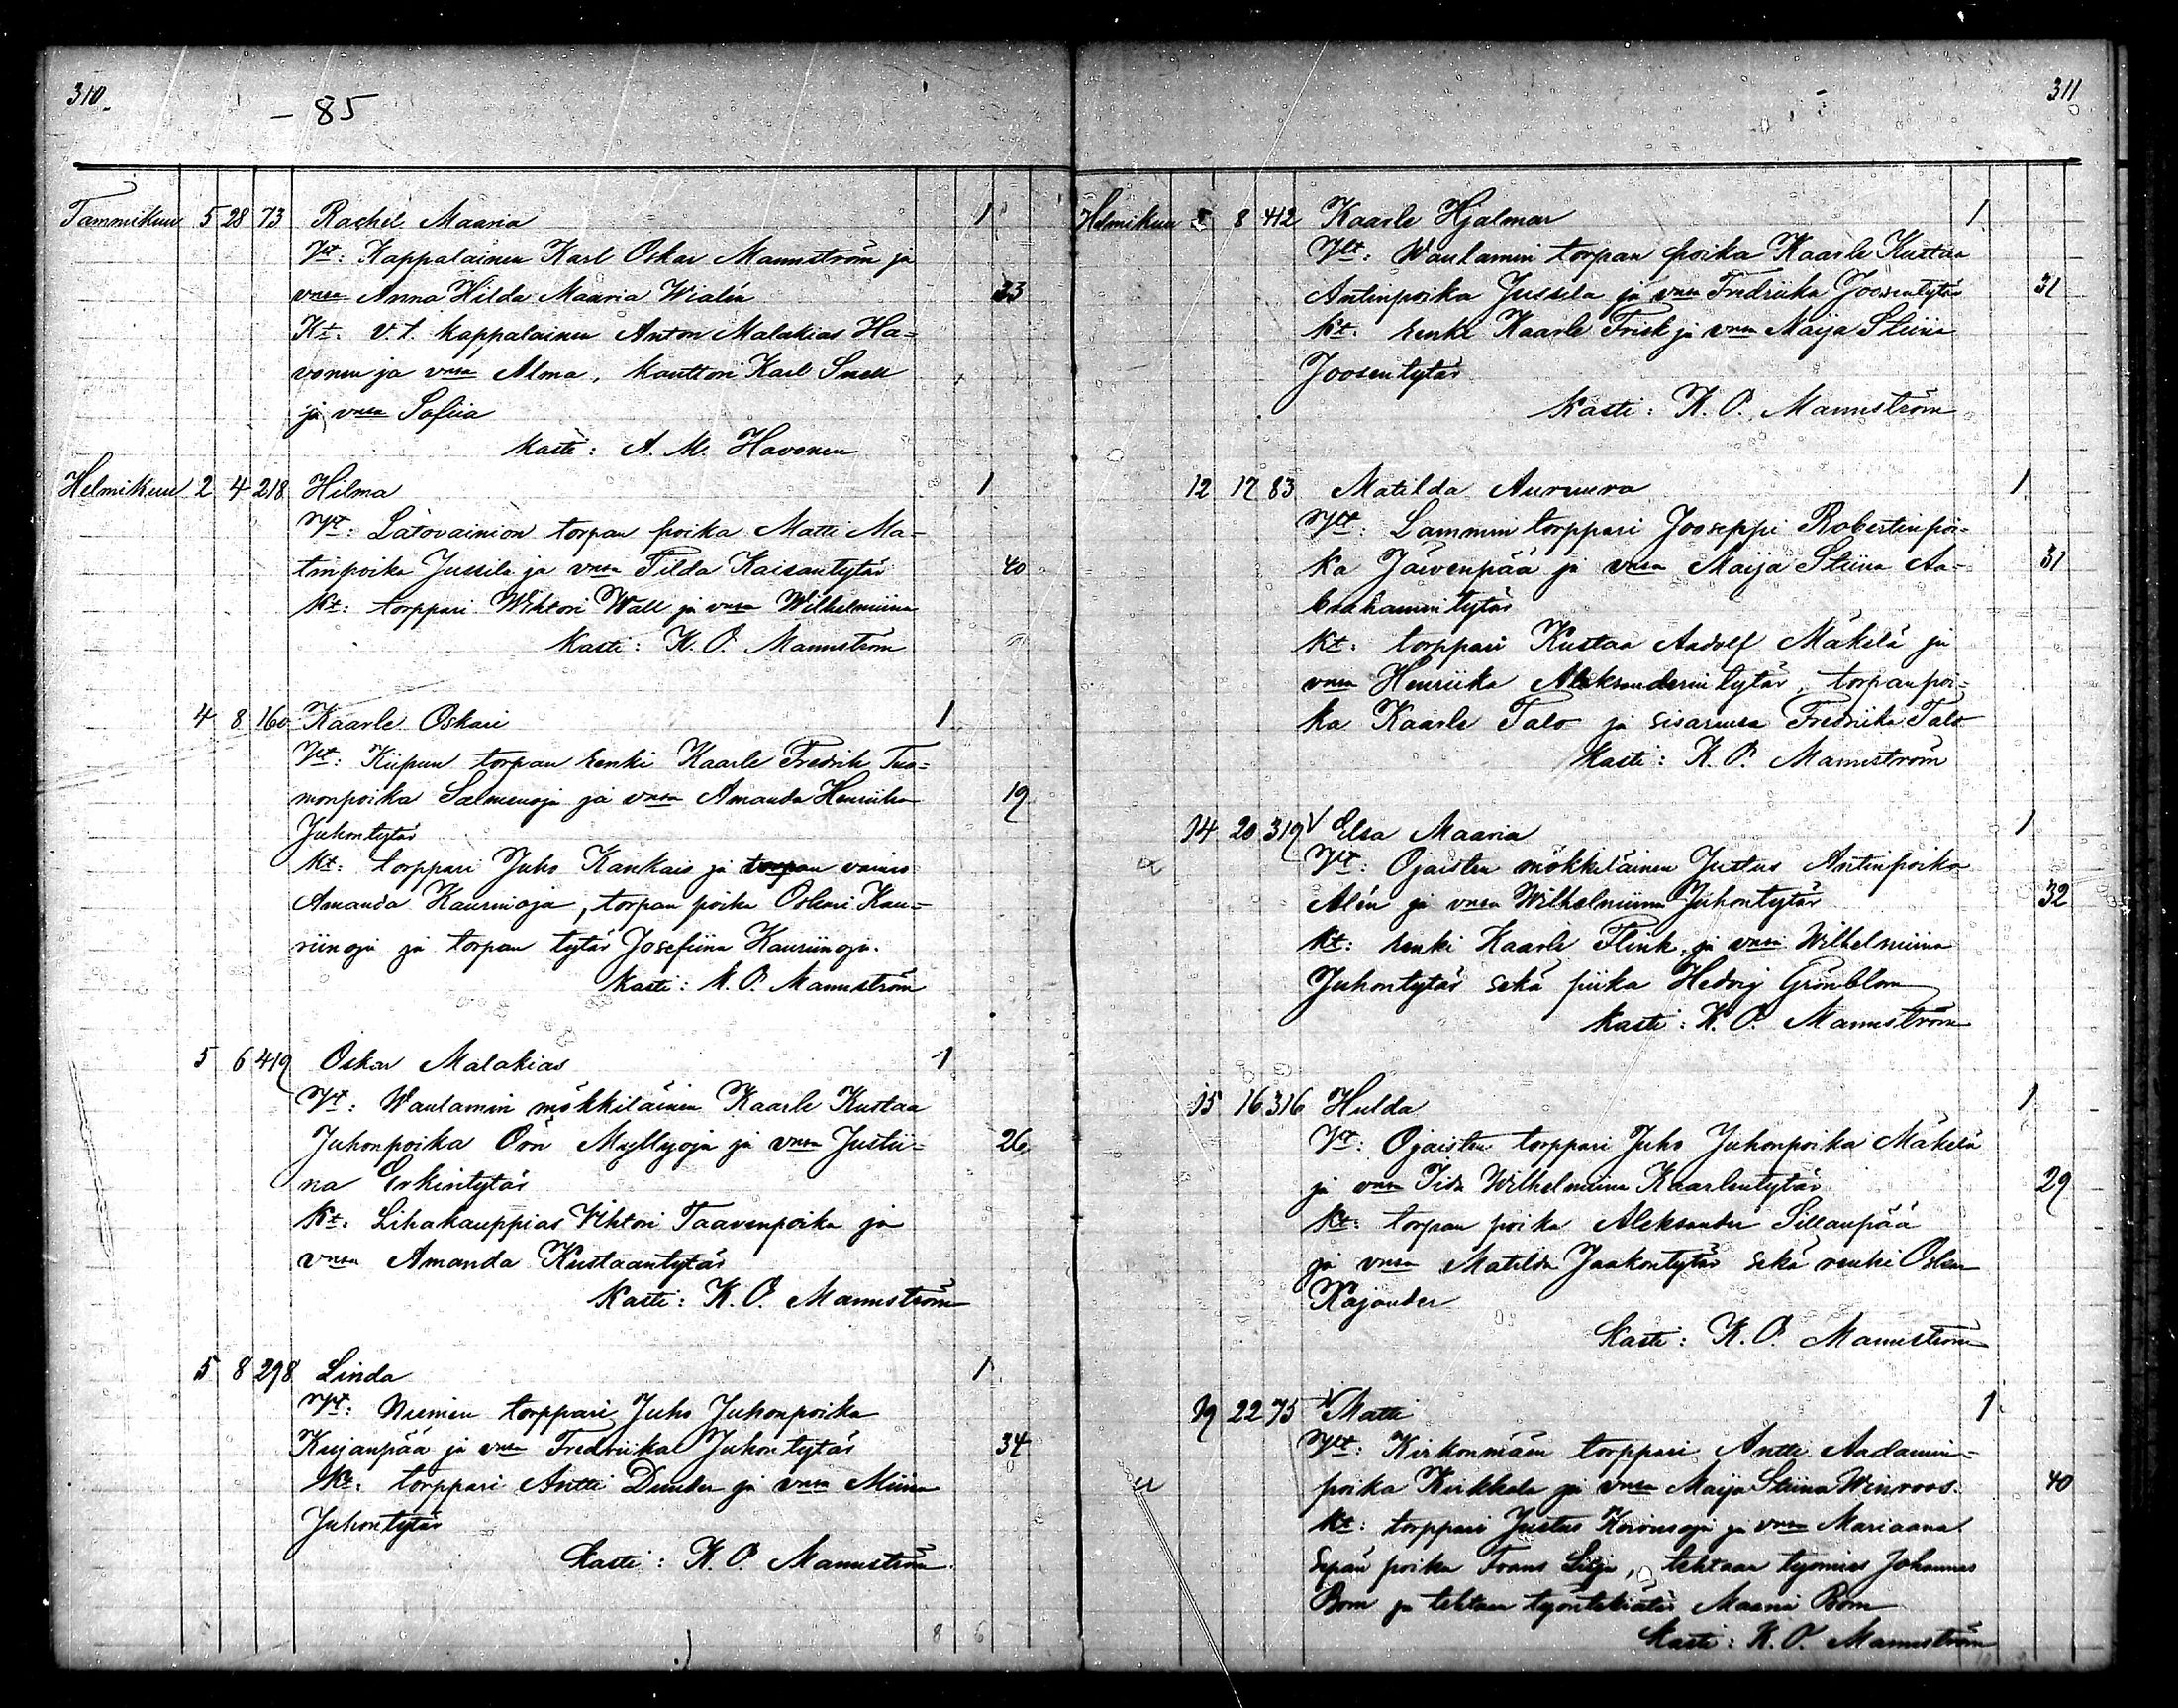 310.
- 85
Tammikuu 5 28 73 Rachel Maaria 1
Vt: Kappalainen Karl Oskar Mannström ja
vmsa Anna Hilda Maaria Wialén 23
Kt. v.t. kappalainen Anton Malakias Ha=
vonen ja vmsa Alma, kanttori Karl Snell
ja vmsa Sofiia
Kasti: A. M. Havonen
Helmikuu 2 4 218 Hilma 1
Vt: Latovainion torpan poika Matti Ma-
tinpoika Jussila ja vmsa Tilda Kaisantytär 40
Kt: torppari Wihtori Wall ja vmsa Wilhelmiina
Kasti: K. O. Mannström
4 8 160 Kaarle Oskari 1
Vt: Kiipun torpan renki Kaarle Fredrik Tuo=
monpoika Salmenoja ja vmsa Amanda Henriika 19
Juhontytär
Kt: torppari Juho Kankais ja torpan vaimo
Amanda Kauriinoja, torpan poika Oskari Kau=
riinoja ja torpan tytär Josefiina Kauriinoja.
Kasti: K. O. Mannström
5 6 419 Oskar Malakias 1
Vt: Waulamin mökkiläinen Kaarle Kustaa
Juhonpoika Öön Myllyoja ja vmsa Justii- 26
na Erkintytär
Kt: Lihakauppias Vihtori Taavenpoika ja
vmsa Amanda Kustaantytär
Kasti: K. O. Mannström
5 8 298 Linda 1
Vt: Niemen torppari Juho Juhonpoika
Kujanpää ja vmsa Fredriika Juhontytär 34
Kt: torppari Antti Dunder ja vmsa Miina
Juhontytär
Kasti: K. O. Mannström
8 6
311
Helmikuu 5 8 412 Kaarle Hjalmar 1
Vt: Waulamin torpan poika Kaarle Kustaa
Antinpoika Jussila ja vmsa Fredriika Joosentytär 31
Kt. renki Kaarle Frisk ja vmsa Maija Stiina
Joosentytär
Kasti: K. O. Mannström
12 17 83 Matilda Auruura 1
Vt: Lammin torppari Jooseppi Robertinpoi-
ka Järvenpää ja vmsa Maija Stiina Aa- 31
brahamintytär
Kt: torppari Kustaa Aadolf Mäkelä ja
vmsa Henriika Aleksanderintytär, torpanpoi=
ka Kaarle Talo ja sisarensa Fredriika Talo
Kasti: K. O. Mannström
14 20 319 V Elsa Maaria 1
Vt: Ojaisten mökkiläinen Justus Antinpoika
Alén ja vmsa Wilhelmiina Juhontytär 32
Kt: renki Kaarle Flink ja vmsa Wilhelmiina
Juhontytär sekä piika Hedvig Grönblom
Kasti: K. O. Mannström
15 16 316 Hulda 1
Vt: Ojaisten torppari Juho Juhonpoika Mäkelä
ja vmsa Iida Wilhelmiina Kaarlentytär 29
Kt: torpan poika Aleksander Sillanpää
ja vmsa Matilda Jaakontytär sekä renki Oskar
Kajander
Kasti: K. O. Mannström
19 22 75 V Matti 1
Vt: Kirkonmäen torppari Antti Aadamin-
poika Kirkkala ja vmsa Maija Stiina Winroos. 40
Kt: torppari Justus Koivunoja ja vmsa Mariaana
Sepän poika Frans Silja, tehtaan työmies Johannes
Bom ja tehtaan työntekiätär Maaria Bom
Kasti: K. O. Mannström